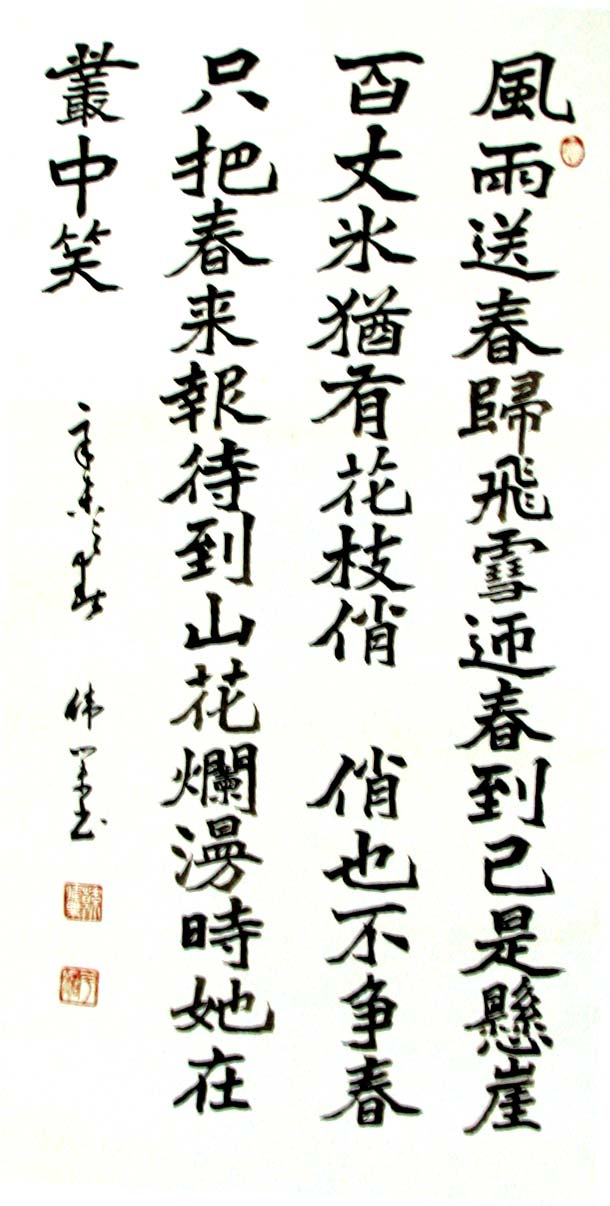 風雨送春歸飛雪迎春到已是懸崖
百丈冰猶有花枝俏 俏也不争春
只把春来報待到山花爛漫時她在
叢中笑